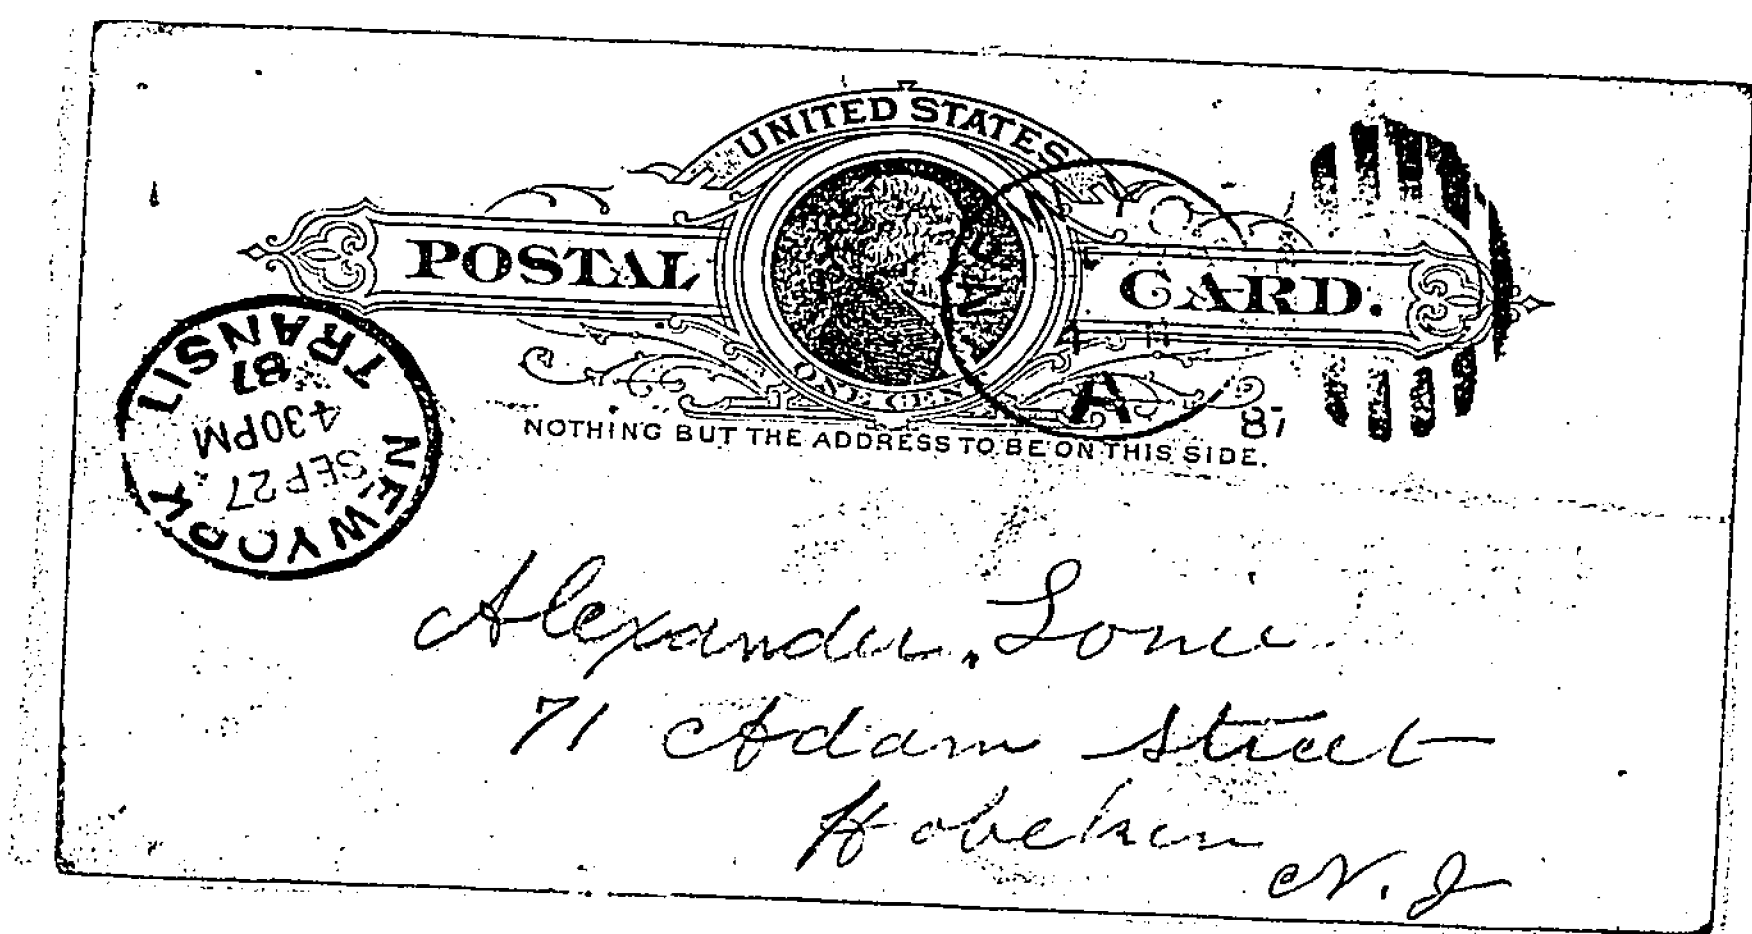 UNITED STATES
POSTAL CARD.
ONE CENT
NOTHING BUT THE ADDRESS TO BE ON THIS SIDE.
A
87
NEW YORK
SEP 27
430PM
87
TRANSIT
Alexander
71 Adam Street
Hoboken
N. J